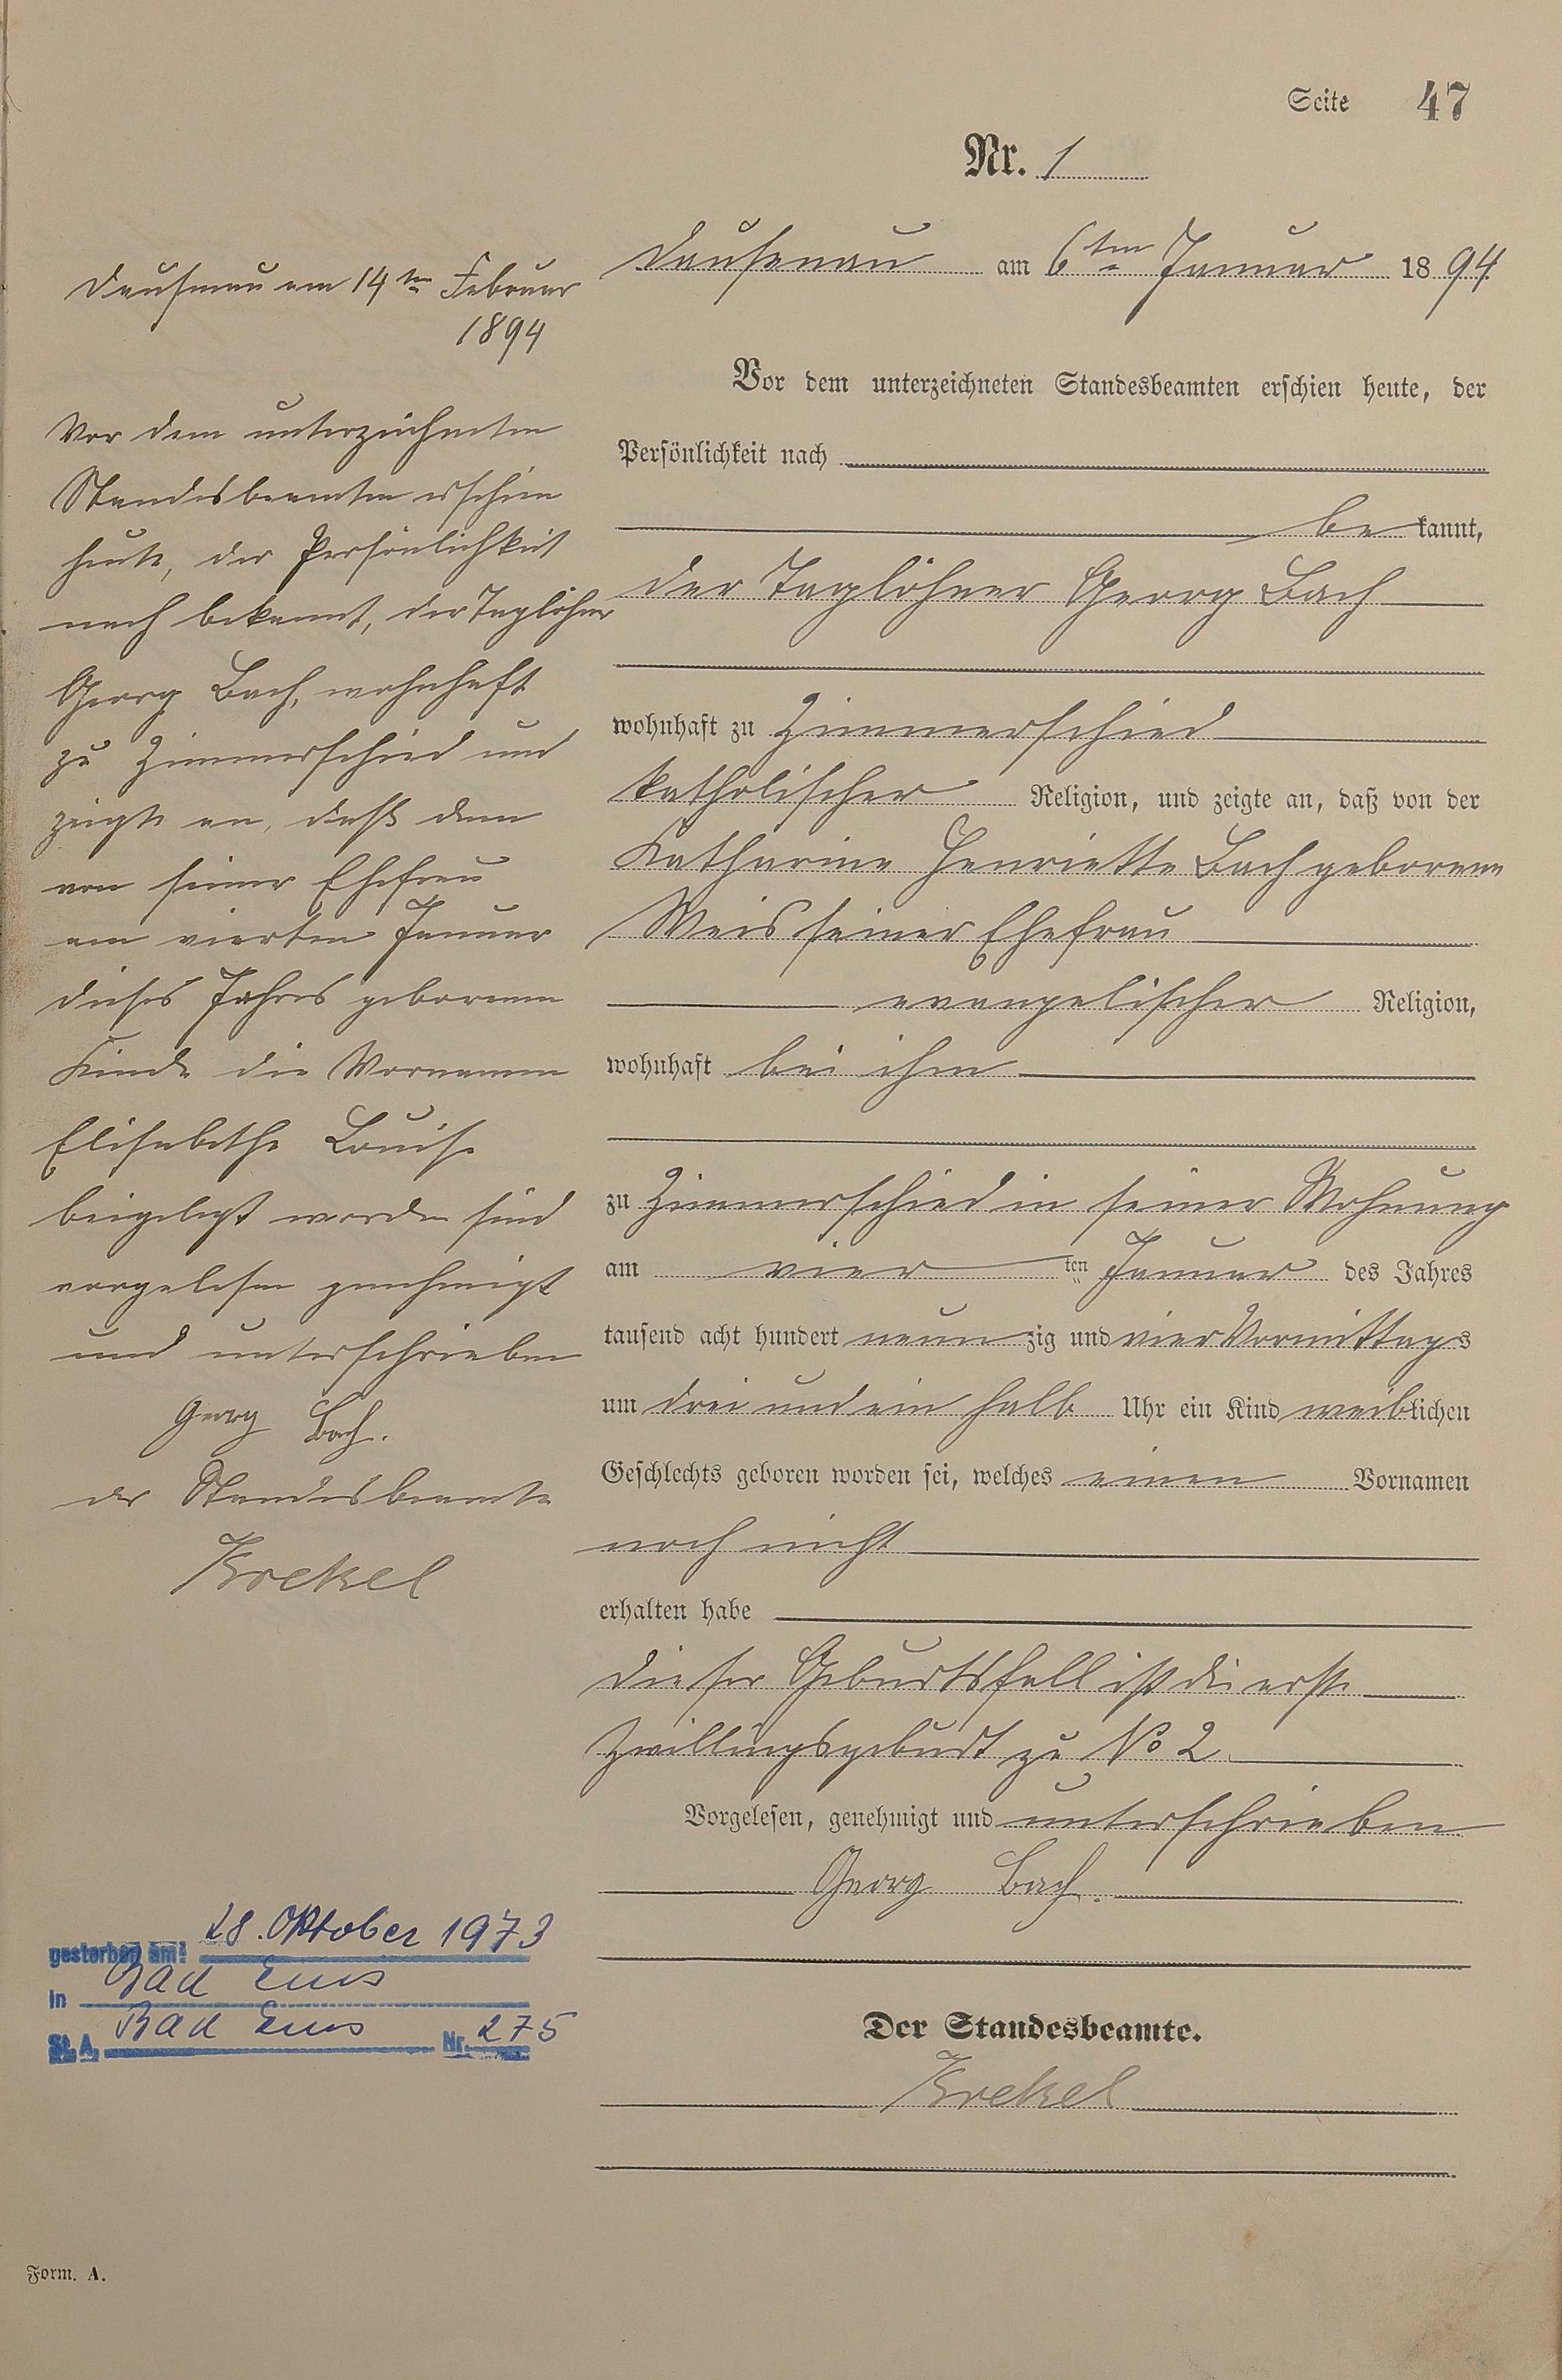 Seite 47
Nr. 1
Dausenau am 6ten Januar 1894.
Vor dem unterzeichneten Standesbeamten erschien heute, der
Persönlichkeit nach
be kannt,
der Taglöhner Georg Bach
wohnhaft zu Zimmerschied
katholischer Religion, und zeigte an, daß von der
Katharine Henriette Bach geborenen
Weis seiner Ehefrau
evangelischer Religion,
wohnhaft bei ihm
zu Zimmerschied in seiner Wohnung
am vier ten Januar des Jahres
tausend acht hundert neun zig und vier Vormittags
um drei und ein halb Uhr ein Kind weiblichen
Geschlechts geboren worden sei, welches einen Vornamen
noch nicht
erhalten habe
Dieser Geburtsfall ist die erste
Zwillingsgeburt zu No 2.
Vorgelesen, genehmigt und unterschrieben
Georg Bach.
Der Standesbeamte.
Krekel
Dausenau am 14ten Februar
1894
Vor dem unterzeichneten
Standesbeamten erschien
heute, der Persönlichkeit
nach bekannt, der Taglöhner
Georg Bach, wohnhaft
zu Zimmerschied und
zeigte an, daß dem
von seiner Ehefrau
am vierten Januar
dieses Jahres geborenen
Kinde die Vornamen
Elisabethe Louise
beigelegt worden sind
vorgelesen genehmigt
und unterschrieben
Georg Bach.
der Standesbeamte
Krekel
gestorben am: 28. Oktober 1973
in Bad Ems
St. A. Bad Ems Nr. 275
Form. A.